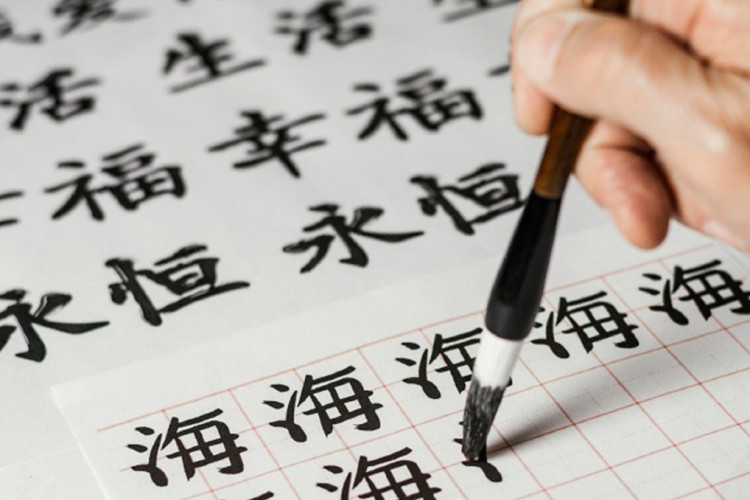 爱
活 生活
福 幸福
永恒 永恒
海 海 海 海 海
海